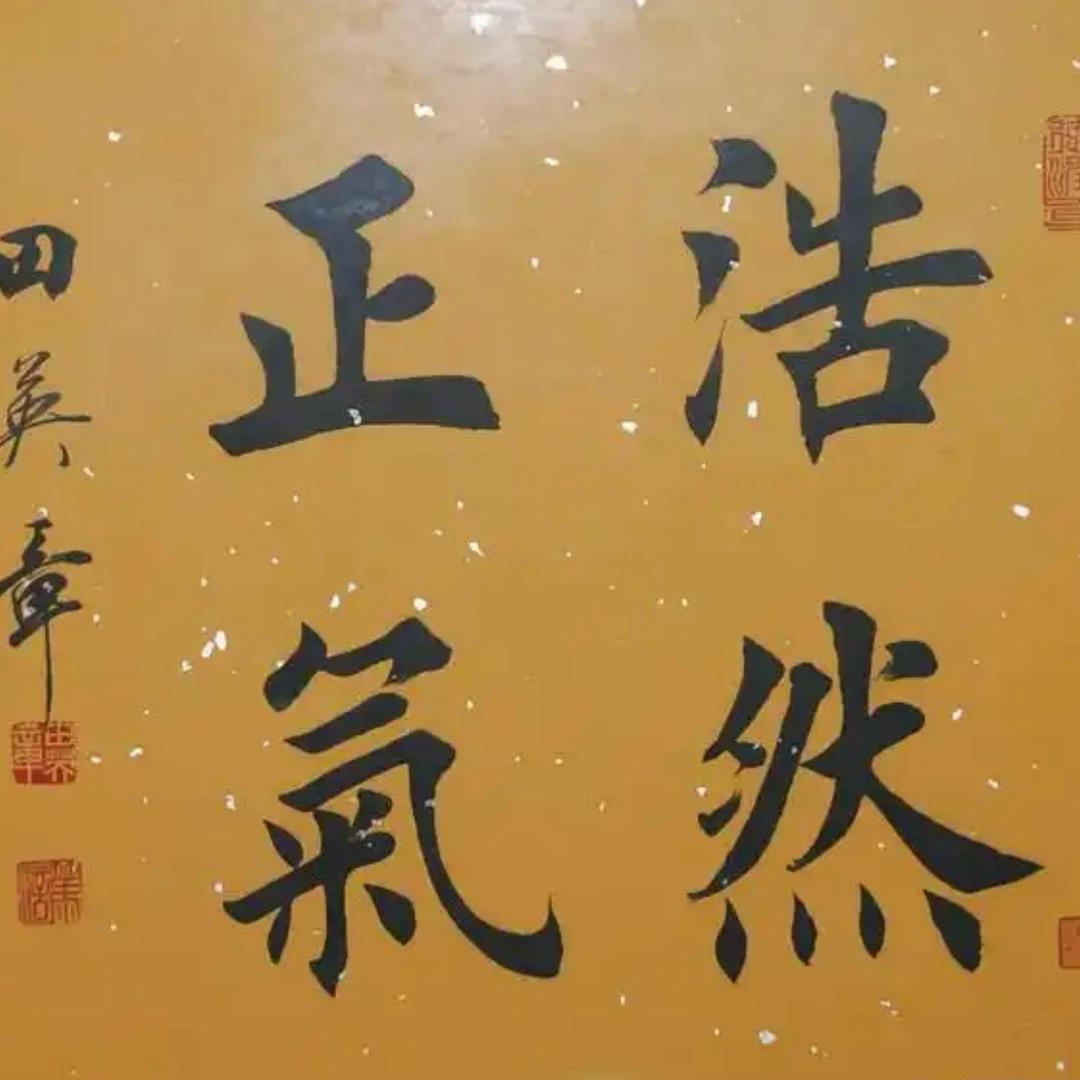 浩然
正氣
田英章